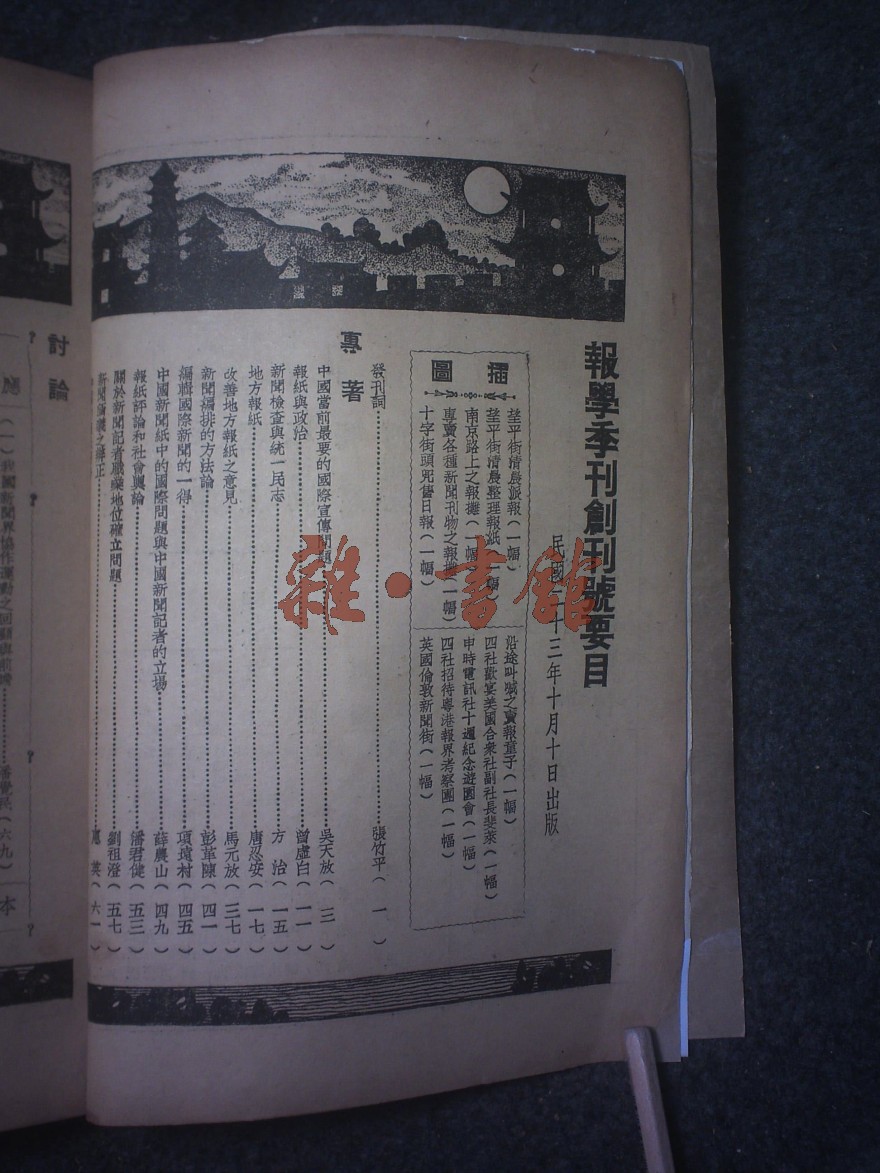 報學季刊創刊號要目
民國 十三年十月十日出版
插圖
望平街清晨派報（一幅）
望平街清晨整理報紙（一幅）
南京路上之報攤（一幅）
專賣各種新聞刊物之報攤（一幅）
十字街頭兜售日報（一幅）
沿途叫喊之賣報童子（一幅）
四社歡宴美國合衆社副社長斐萊（一幅）
申時電訊社十週紀念遊園會（一幅）
四社招待粵港報界考察團（一幅）
英國倫敦新聞街（一幅）
發刊詞 張竹平（一）
專著
中國當前最要的國際宣傳問題 吳天放（三）
報紙與政治 曾虛白（一一）
新聞檢查與統一民志 方治（一五）
地方報紙 唐忍安（一七）
改善地方報紙之意見 馬元放（三七）
新聞編排的方法論 彭革陳（四一）
編輯國際新聞的一得 項遠村（四五）
中國新聞紙中的國際問題與中國新聞記者的立場 薛農山（四九）
報紙評論和社會輿論 潘君健（五三）
關於新聞記者職業地位確立問題 劉祖澄（五七）
新聞 之 正 英（六一）
討論
應
（一）我國新聞界協作運動之回顧與前瞻 潘覺民（六九）
本
雜·書館